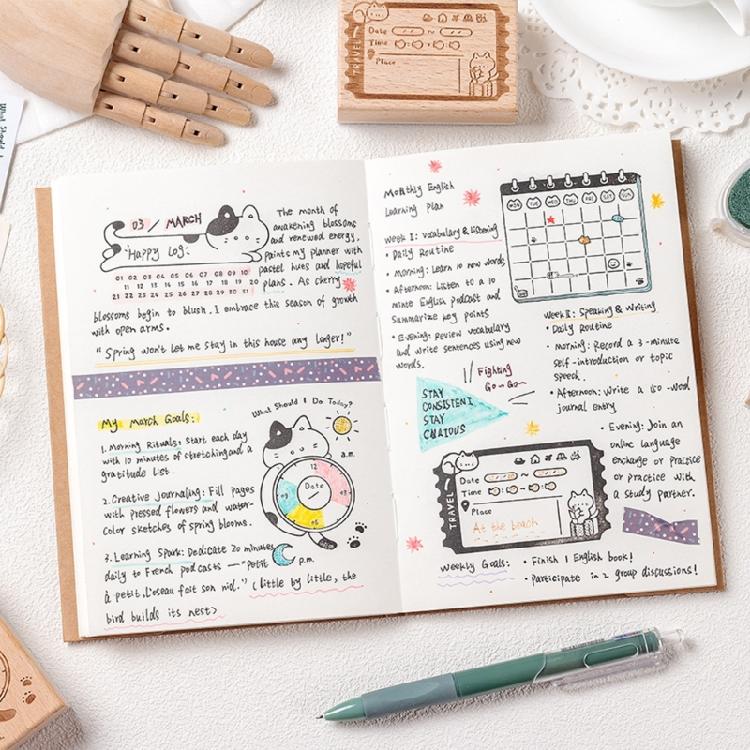 What Should I
TRAVEL
Date ~
Time
Place
03 / MARCH
"Happy Log:
01 02 03 04 05 06 07 08 09 10
11 12 13 14 15 16 17 18 19 20
21 22 23 24 25 26 27 28 29 30 31
The month of
awakening blossoms
and renewed energy,
paints my planner with
pastel hues and hopeful
plans. As cherry
blossoms begin to blush, I embrace this season of growth
with open arms.
"Spring won't let me stay in this house any longer!"
My March Goals:
1. Morning Rituals: Start each day
with 10 minutes of stretching and a
gratitude list
2. Creative Journaling: Fill pages
with pressed flowers and water-
color sketches of spring blooms.
3. Learning Spark: Dedicate 20 minutes
daily to French podcasts — "Petit
à petit, l'oseau fait son nid." (little by little, the
bird builds its nest)
What Should I Do Today?
a.m.
12
03
06
09
Date
p.m.
Monthly English
Learning Plan
Week I: Vocabulary & listening
• Daily Routine
• Morning: Learn 10 new words
• Afternoon: Listen to a 10
minte English podcast and
Summarize key points
• Evening: Review vocabulary
and write sentences using new
words.
Fighting
Go~Go~
STAY
CONSISTENT
STAY
CURIOUS
MON TUE WED THU FRI SAT SUN
Week II: Speaking & Writing
• Daily Routine
• Morning: Record a 3-minute
self-introduction or topic
speech.
• Afternoon: Write a 150-word
journal entry
• Evening: Join an
online language
exchange or practice
or practice with
a study partner.
TRAVEL
Date ~
Time
Place
At the beach
Weekly Goals:
• Finish 1 English book!
• Participate in 2 group discussions!